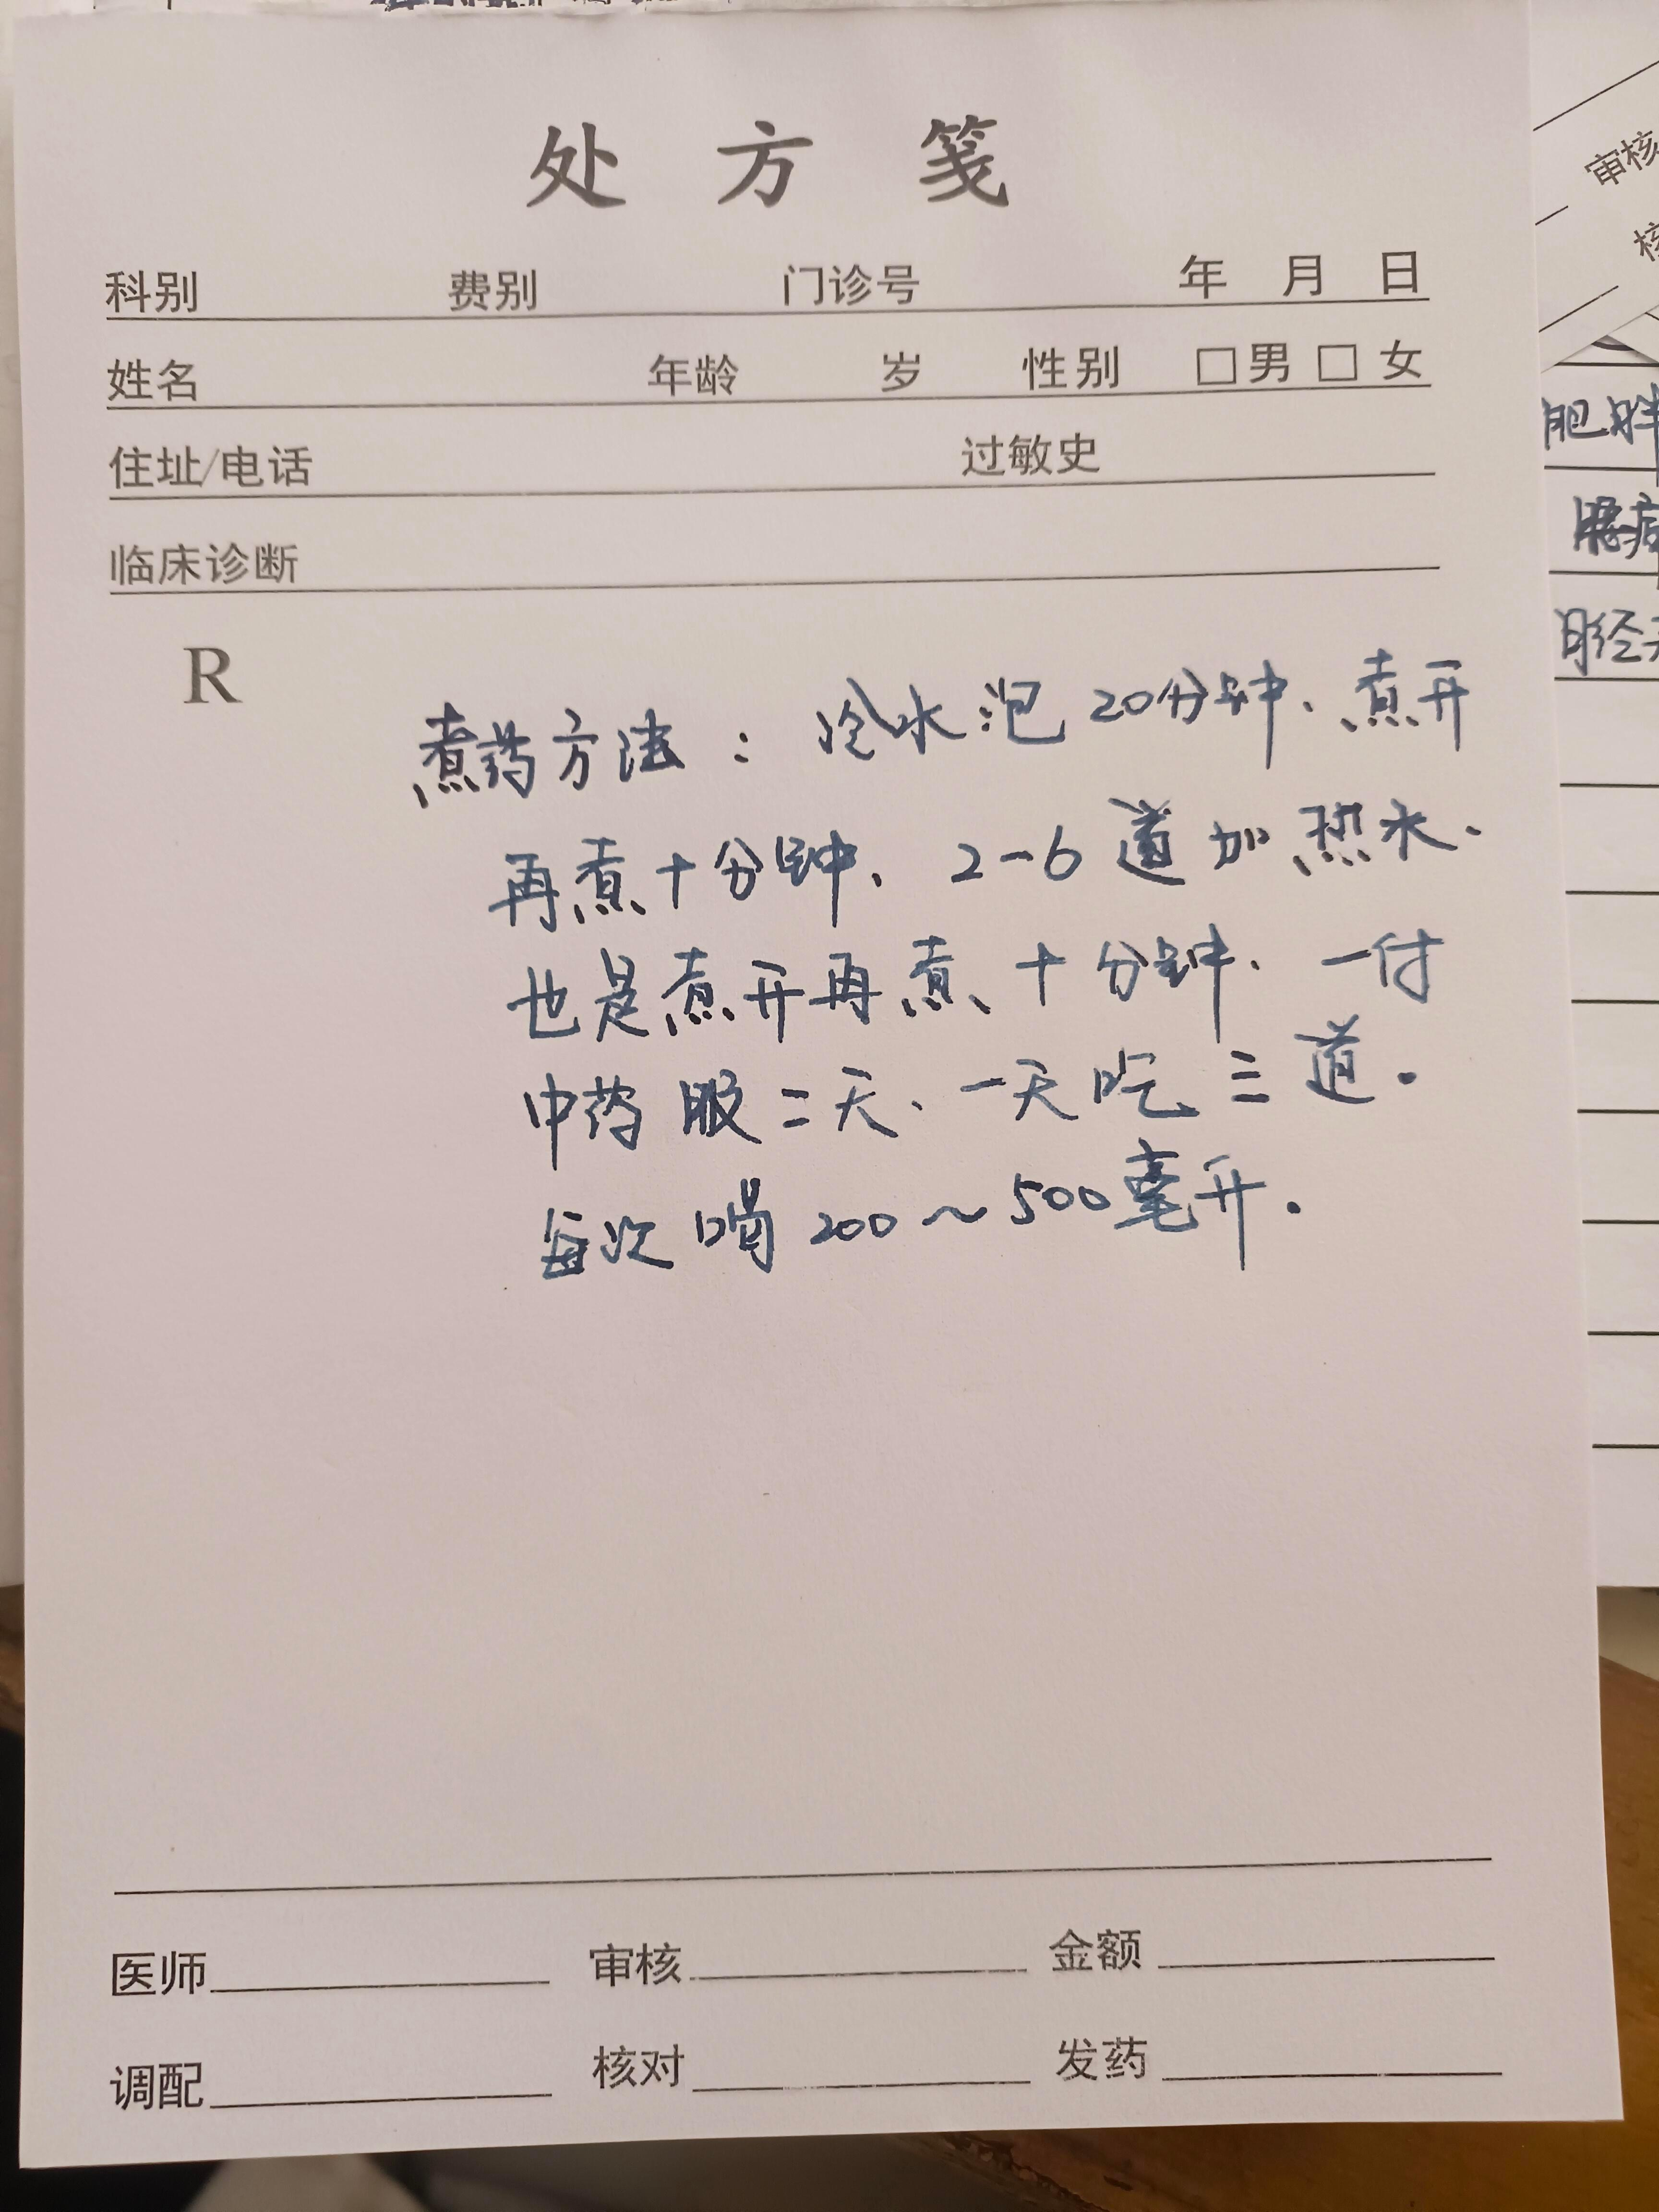 处方笺
科别 费别 门诊号 年 月 日
姓名 年龄 岁 性别 □男 □女
住址/电话 过敏史
临床诊断
R
煮药方法：冷水泡20分钟、煮开
再煮十分钟、2-6道加热水、
也是煮开再煮十分钟、一付
中药服二天、一天吃三道。
每次喝200～500毫升.
医师 审核 金额
调配 核对 发药
审核
肥胖